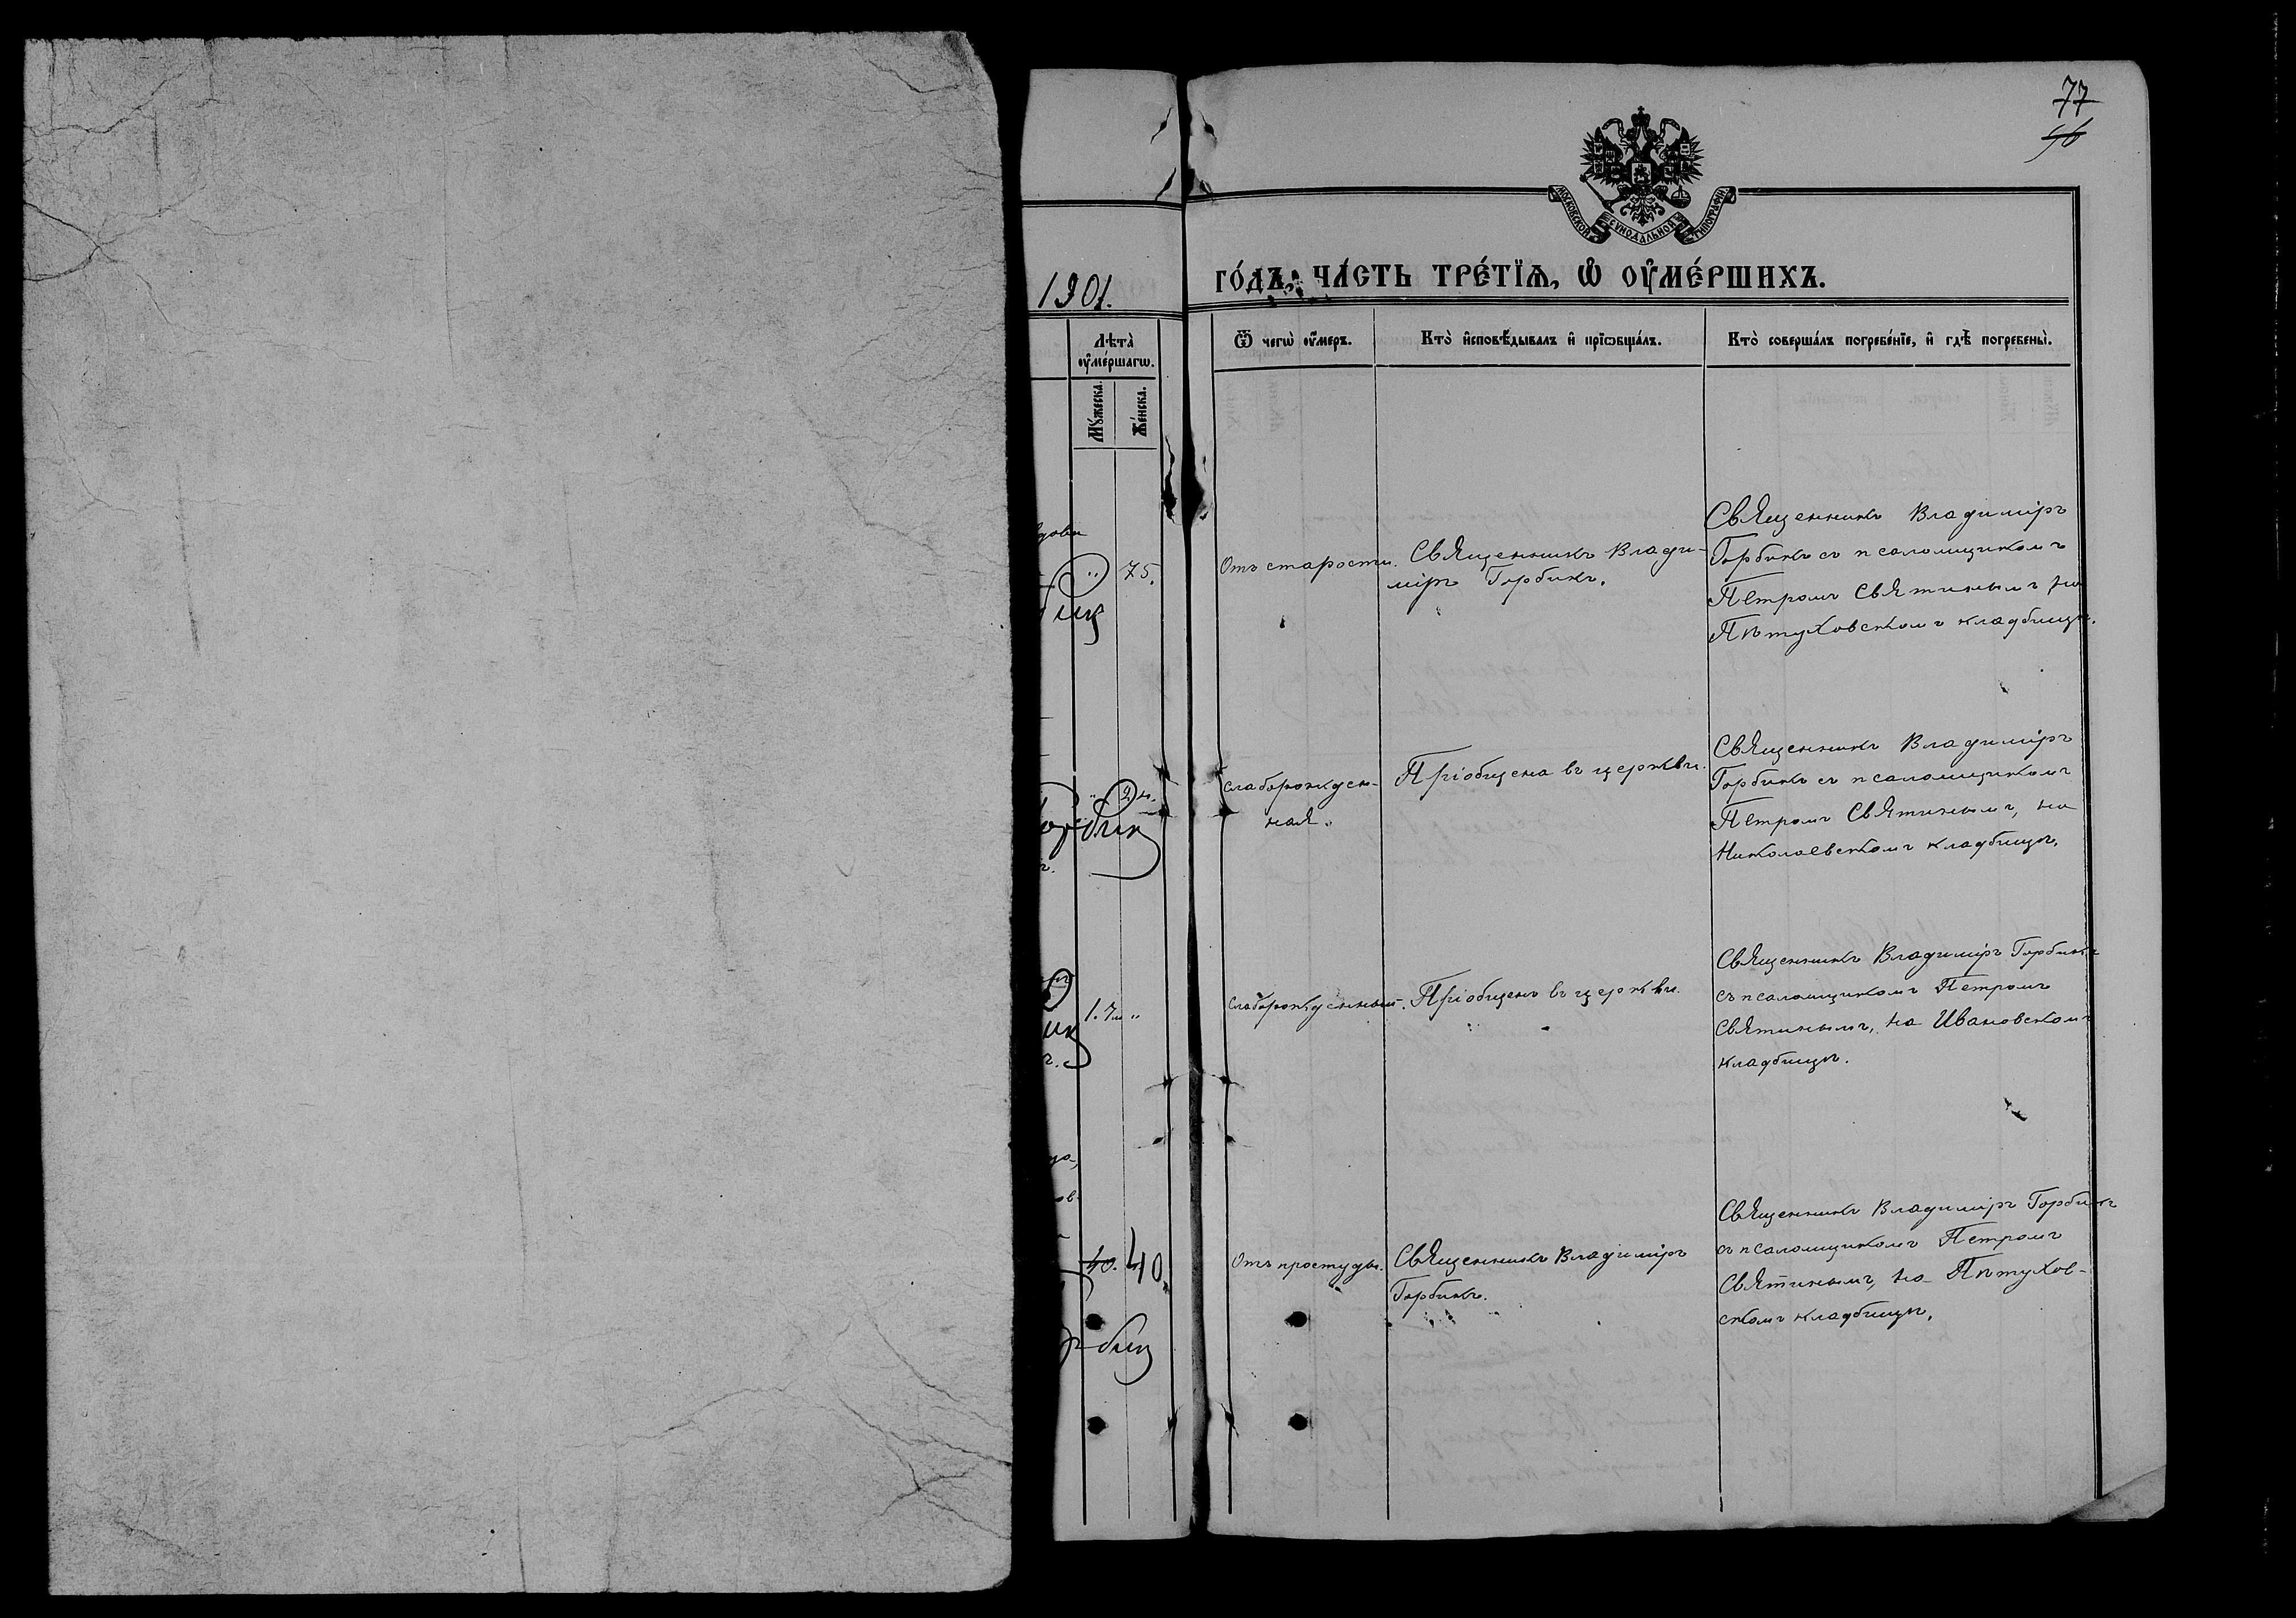 77
96
МОСКОВСКОЙ СѴНОДАЛЬНОЙ ТИПОГРАФІИ
1901.
го́дъ, ча́сть тре́тїѧ, ѡ҆ ᲂу҆ме́ршихъ.
Лѣта̀
ᲂу҆ме́ршагѡ.
Мꙋ́жеска.
Же́нска.
Ѿ чегѡ̀ ᲂу҆́меръ.
Кто̀ и҆сповѣ́дывалъ и҆ прїѡбща́лъ.
Кто̀ соверша́лъ погребе́нїе, и҆ гдѣ̀ погребены̀.
„ 75.
Отъ старости.
Священникъ Влади-
міръ Горбикъ.
Священникъ Владиміръ
Горбикъ съ псаломщикомъ
Петромъ Святинымъ на
Пѣтуховскомъ кладбищѣ.
„ 2 н.
слаборожден-
ная.
Пріобщена въ церкви.
Священникъ Владиміръ
Горбикъ съ псаломщикомъ
Петромъ Святинымъ, на
Николаевскомъ кладбищѣ.
1. 7м „
слаборожденный.
Пріобщенъ въ церкви.
Священникъ Владиміръ Горбикъ
съ псаломщикомъ Петромъ
Святинымъ, на Ивановскомъ
кладбищѣ.
40. 40.
Отъ простуды.
Священникъ Владиміръ
Горбикъ.
Священникъ Владиміръ Горбикъ
съ псаломщикомъ Петромъ
Святинымъ, на Пѣтухов-
скомъ кладбищѣ.